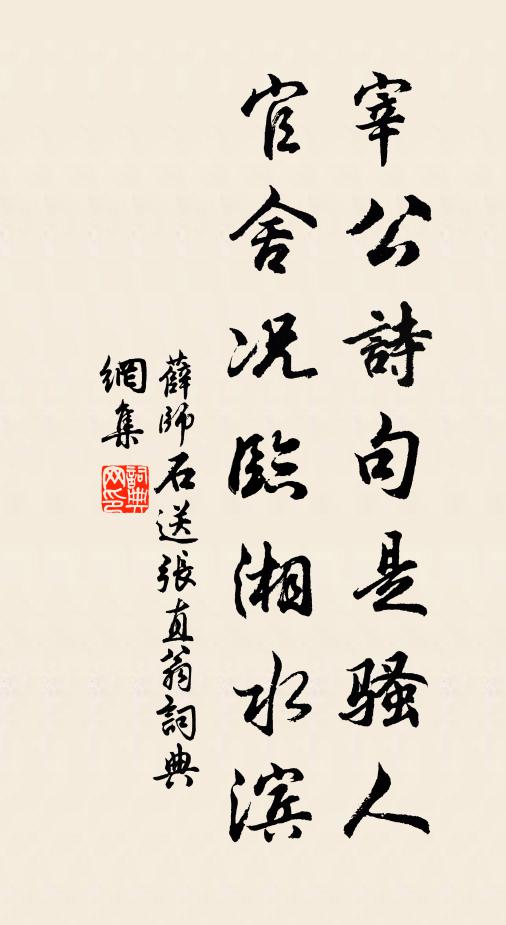 宰公詩句是騷人
官舍况臨湘水滨
薛師石送張直翁詞典
網集
詞典
网印